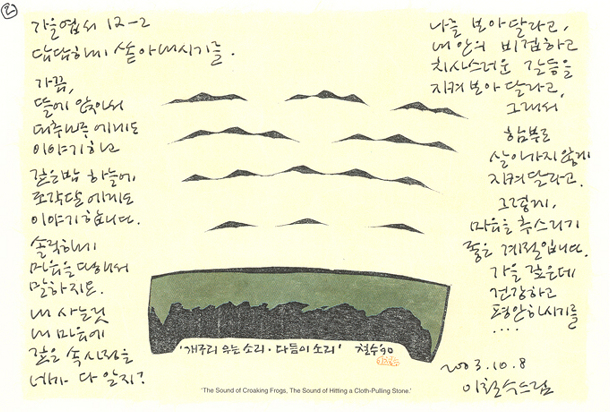 ②
가을엽서 12-2
답답하게 쏟아내시기를.
가끔,
뜰에 앉아서
대추나무에게도
이야기하고
깊은밤 하늘에
조각달에게도
이야기합니다.
솔직하게
마음을 다해서
말하지요.
내 사는 것
내 마음에
깊은 속사정을
네가 다 알지?
나를 보아달라고,
내 안의 비겁하고
치사스러운 갈등을
지켜보아달라고,
그래서
함부로
살아가지 않게
지켜달라고.
그렇게,
마음을 추스리기
좋은 계절입니다.
가을 깊은데
건강하고
평안하시기를
....
2003.10.8
이철수드림
'개구리 우는 소리·다듬이 소리' 철수 90
'The Sound of Croaking Frogs, The Sound of Hitting a Cloth-Pulling Stone.'